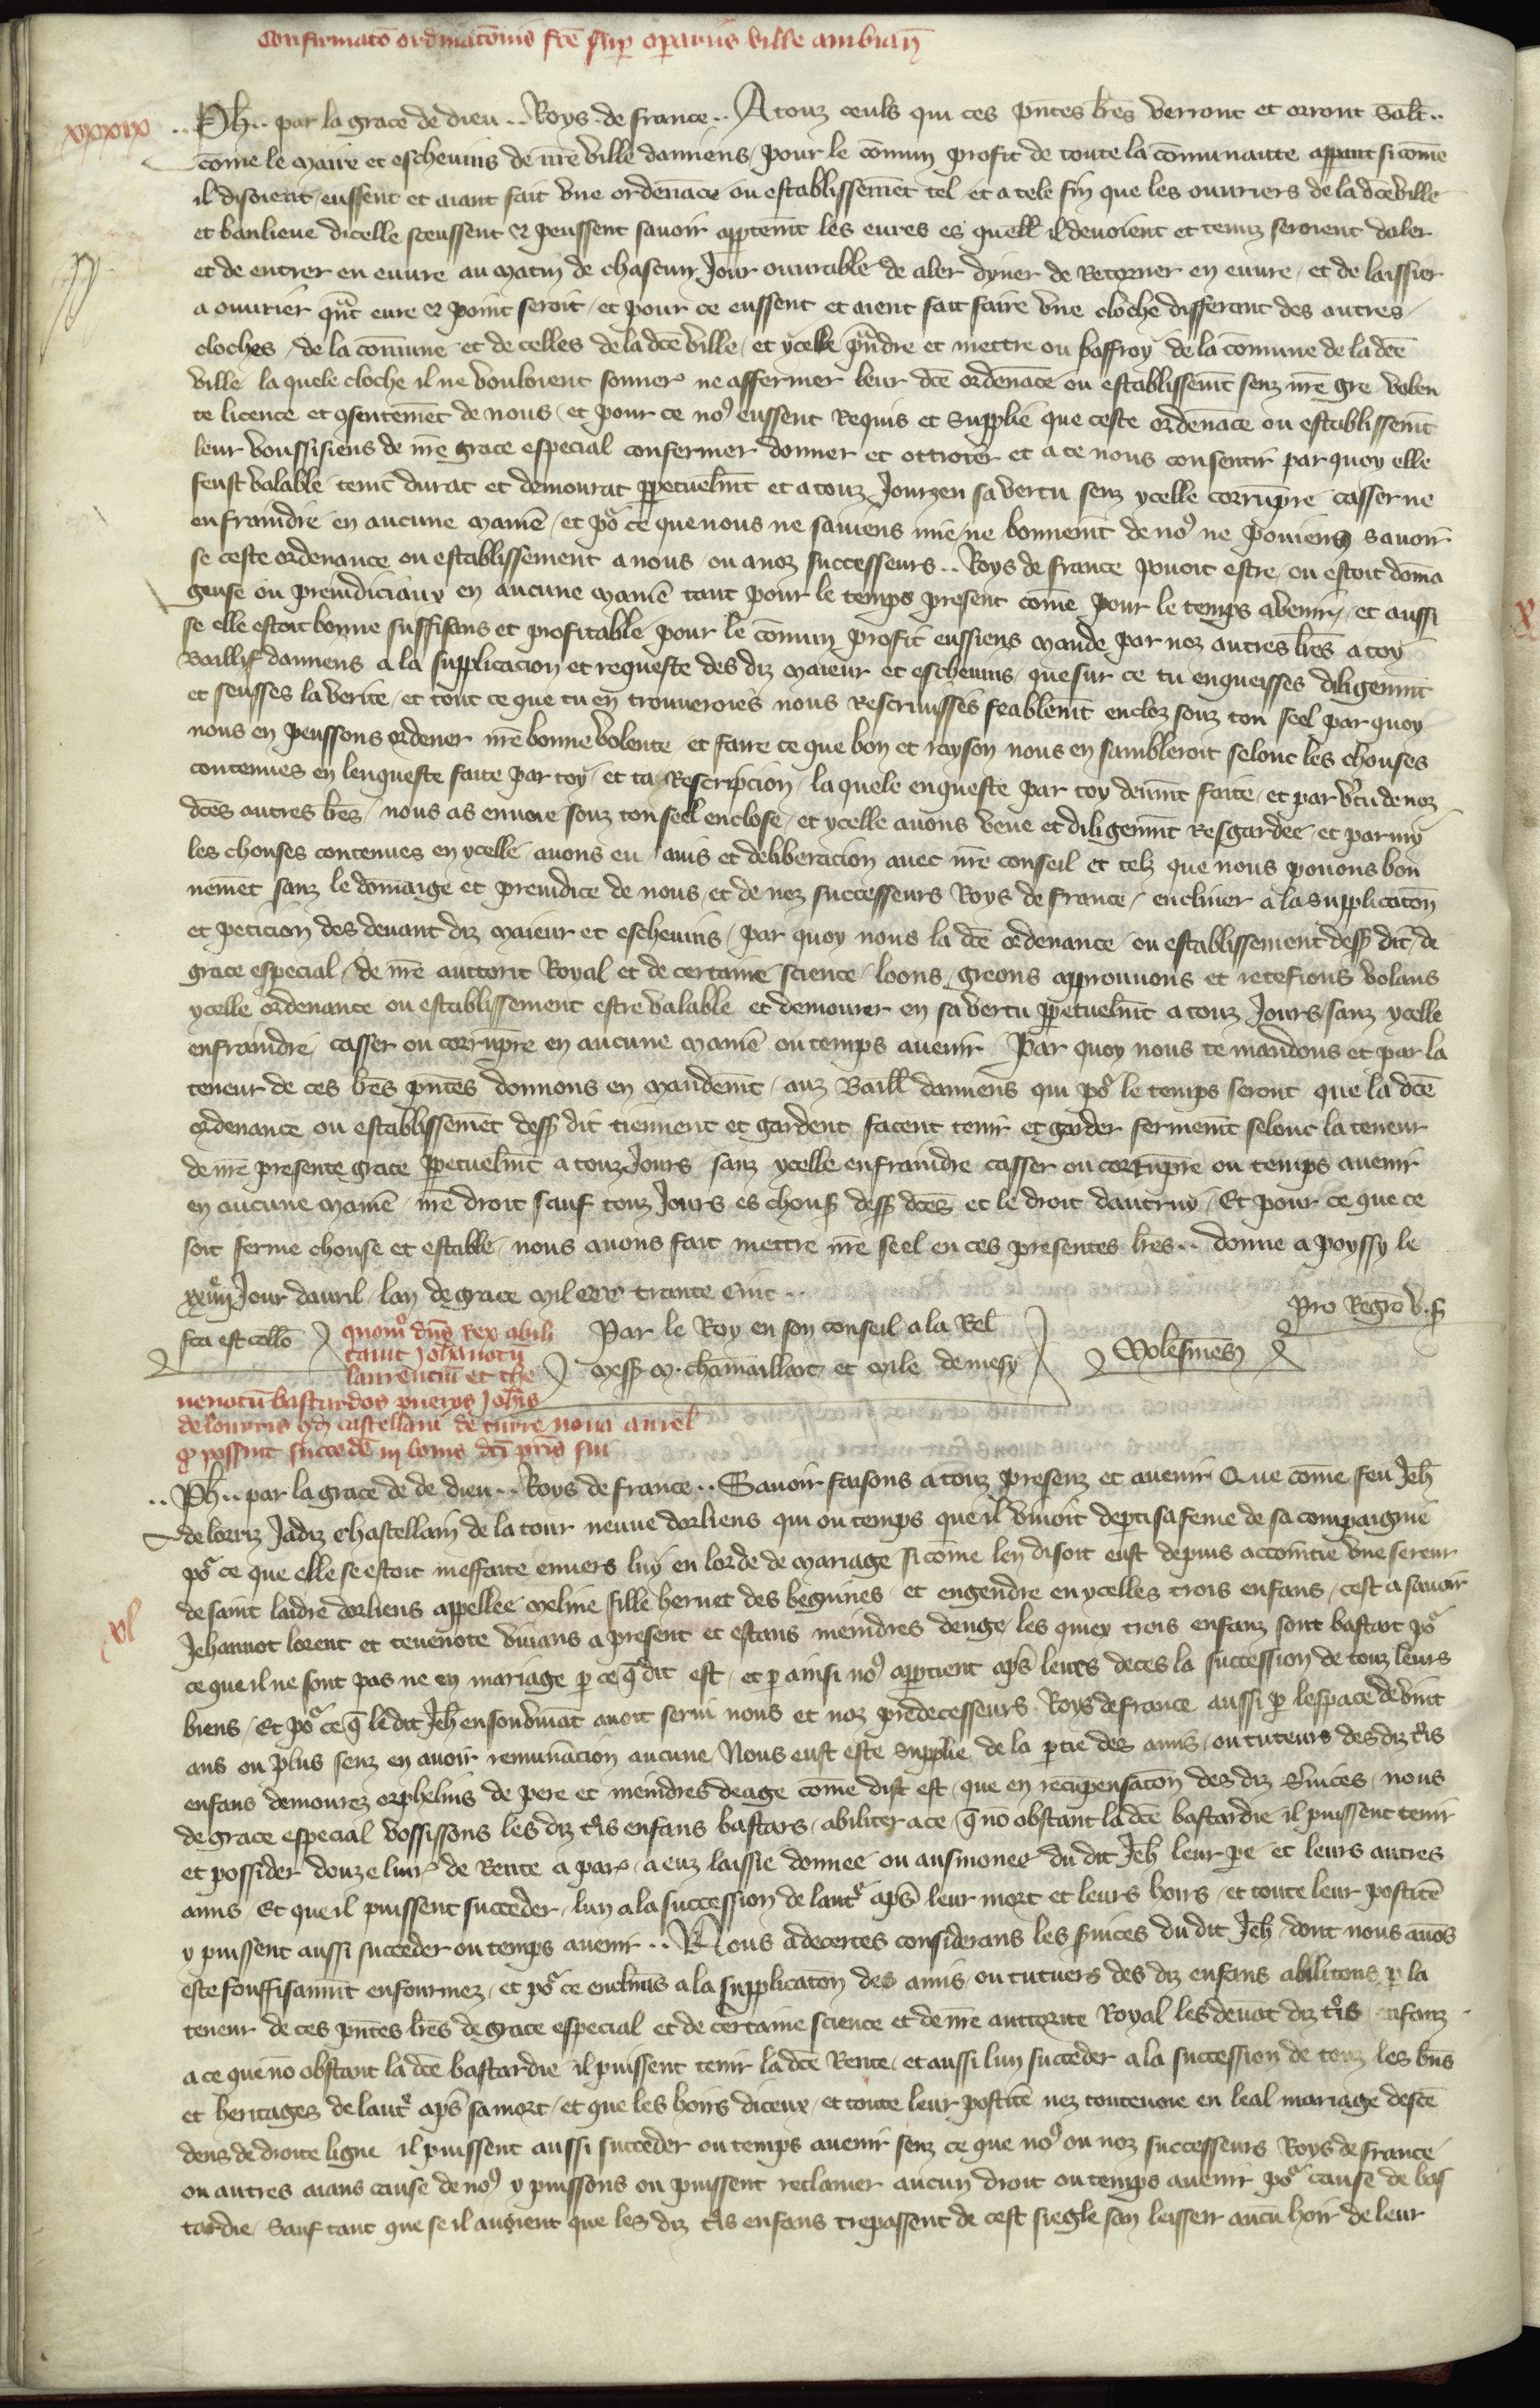 Confirmatō ordinatōnis fcē sup operariis ville ambian̄
xxxix
..Ph.. par la grace de dieu .. Roys de france .. A touz ceuls qui ces pn̄tes lr̄es verront et orront Salt̄..
cōme le maire et eschevins de nr̄e ville damiens / pour le cōmun profit de toute la cōmunaute appant si cōme
il disoient / eussent et aiant fait vne ordenāce ou establissemēt tel et a tele fin que les ouuriers de la dc̄e ville
et banlieue dicelle sceussent et peussent sauoir apptem̄t les eures es quell̄ il deuoient et tenuz seroient daler
et de entrer en euure au matin de chascun Jour ouurable de aler dyner de Retorner en euure / et de laissier
a ouurier qn̄t eure et point seroit / et pour ce eussent et aient fait faire vne cloche differant des autres
cloches / de la cōmune et de celles de la dc̄e ville / et ycelle pn̄dre et mettre ou baffroy de la cōmune de la dc̄e
ville la quele cloche il ne vouloient sonner ne affermer leur dc̄e ordenāce ou establissem̄t senz nr̄e gre volen
te licence et ꝯsentemēt de nous / et pour ce noꝰ eussent Requis et supplie que ceste ordenāce ou establissem̄t
leur voussissiens de nr̄e grace especial confermer donner et ottroier et a ce nous consentir par quoy elle
feust valable tenīt durat et demourat ꝑpetuelm̄t et a touz Jourz en sa vertu senz ycelle corrūpre casser ne
enfraindre en aucune maniē / et poʳ ce que nous ne sauiens mie / ne bonnem̄t de noꝰ ne pouiens sauoir
se ceste ordenance ou establissement a nous / ou a noz successeurs .. Roys de france pouoit estre / ou estoit dōma
geuse ou preiudiciaux en aucune maniē tant pour le temps present cōme pour le temps a venir / et aussi
se elle estoit bonne suffisans et profitable pour le cōmun profit eussiens mande par noz autres lr̄es a toy
Baillif damiens a la supplicacion et requeste des diz maieur et eschevins / que sur ce tu enqueisses diligenm̄t
et seusses la verite / et tout ce que tu en trouueroies nous Rescrisisses feablem̄t enclos souz ton seel par quoy
nous en peussons ordener nr̄e bonne volente et faire ce que bon et rayson nous en sambleroit selonc les chouses
contenues en lenqueste faite par toy / et ta Rescripcion / la quele enqueste par toy deum̄t faite / et par v̄tu de noz
dc̄es autres lr̄es / nous as enuoie souz ton seel enclose / et ycelle auons veue et diligenm̄t Resgardee / et parmy
les chouses contenues en ycelle auons eu auis et deliberacion auec nr̄e conseil et telz que nous pouons bon
nemēt sanz le dōmaige et preiudice de nous / et de noz successeurs Roys de france / encliner a la supplicatōn
et peticion des deuant diz maieur et eschevins / par quoy nous la dc̄e ordenance ou establissement dess dit de
grace especial / de nr̄e auttorit Royal et de certaine science loons greons approuuons et retefions volans
ycelle ordenance ou establissement estre valable et demourer en sa vertu ꝑpetuelm̄t a touz Jours / sanz ycelle
enfraindre casser ou corrūpre en aucune maniē ou temps auenir Par quoy nous te mandons et par la
teneur de ces lr̄es pn̄tes donnons en mandem̄t / auz Baill̄ damiens qui poʳ le temps seront que la dc̄e
ordenance ou establissemēt dess dit tiennent et gardent facent tenir et garder fermem̄t selonc la teneur
de nr̄e presente grace ꝑpetuelm̄t a touz Jours sanz ycelle enfraindre casser ou corrūpre ou temps auenir
en aucune maniē nr̄e droit sauf touz Jours es chouss dess dc̄es et le droit dautruy / Et pour ce que ce
soit ferme chouse et estable / nous auons fait mettre nr̄e seel en ces presentes lr̄es .. donne a poyssy le
xxiiij Jour dauril / lan de grace mil ccc trante Cinc ..
Pro Regro v. s
fca est collō
Par le Roy en son conseil a la Rel̄
mess M. chamaillart et mile de mesy
Molesmēs
quomō dn̄s Rex abili
tauit Johānotū
laurenciū et the
uenotū bastardos pueros Joh̄is
de lourris qd̄ castellani de turre noua aurel̄
qꝫ possint succedē in bonis dc̄i pr̄is sui
xl
..Ph.. par la grace de de dieu .. Roys de france .. Sauoir faisons a touz presenz et auenir Que cōme feu Jeh̄
de lorriz Jadiz chastellain de la tour neuue dorliens qui ou temps que il viuoit depti sa feme de sa compaignie
poʳ ce que elle se estoit meffaite enuers luy en lorde de mariage si cōme len disoit eust depuis accointie vne sereur
de saint ladre dorliens appellee meline fille bernet des beguines et engendre en ycelles trois enfans / cest a sauoir
Jehannot lorent et teuenote viuans a present et estans meindres deage les quiex trois enfanz sont bastart poʳ
ce que il ne sont pas ne en mariage ꝑ ce q̄ dit est / et ꝑ ainsi noꝰ apptient aps̄ leurs deces la succession de touz leurs
biens / Et poʳ ce q̄ le dit Jeh̄ en son viuāt auoit serui nous et noz predecesseurs Roys de france aussi ꝑ lespace de vint
ans ou plus senz en auoir remun̄acion aucune / Nous eust este supplie de la ꝑtie des amis / ou tuteurs des diz tͥs
enfans demourez orphelins de pere et meindres deage cōme dist est / que en recūpensatōn des diz s̄uices / nous
de grace especial vossissons les diz tͥs enfans bastars / abiliter a ce / q̄ no obstant la dc̄e bastardie il puissent tenir
et possider douze liur̄ de Rente a par̄ / a euz laissie donnee ou ausmonee du dit Jeh̄ leur pe et leurs autres
amis Et que il puissent succeder / lun a la succession de lautͥ aps̄ leur mort et leurs hoirs / et toute leur postitē
y puissent aussi succeder ou temps auenir .. Nous adecertes considerans les s̄uices du dit Jeh̄ / dont nous auōs
este souffisanm̄t enfourmez / et poʳ ce enclināns a la supplicatōn des amis / ou tutuers des diz enfans abilitons ꝑ la
teneur de ces pn̄tes lr̄es de grace especial et de certaine science et de nr̄e auttorite Royal les deuāt diz tͥs enfanz
a ce que nō obstant la dc̄e bastardie il puissent tenir la dc̄e Rente / et aussi lun succeder a la succession de touz les bn̄s
et heritages de lautͥ aps̄ sa mort / et que les hoirs diceux / et toute leur postitē nez toutevoie en leal mariage descē
dens de droite ligne il puissent aussi succeder ou temps auenir senz ce que noꝰ ou noz successeurs Roys de france
ou autres aians cause de noꝰ y puissons ou puissent reclamer aucun droit ou temps auenir poʳ cause de bas
tardie / Sauf tant que se il auient que les diz tͥs enfans trepassent de cest siegle san leissier aucū hoir de leur